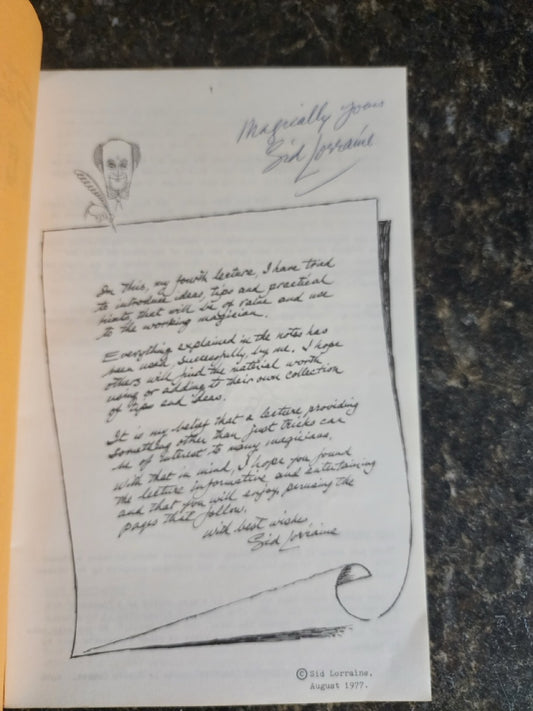 Magically yours
Sid Lorraine
In this, my fourth lecture, I have tried
to introduce ideas, tips and practical
hints, that will be of value and use
to the working magician.
Everything explained in the notes has
been used, successfully, by me. I hope
others will find the material worth
using or adding to their own collection
of tips and ideas.
It is my belief that a lecture, providing
something other than just tricks can
be of interest to many magicians.
With that in mind, I hope you found
the lecture informative and entertaining
and that you will enjoy, perusing the
pages that follow.
With best wishes
Sid Lorraine
© Sid Lorraine.
August 1977.